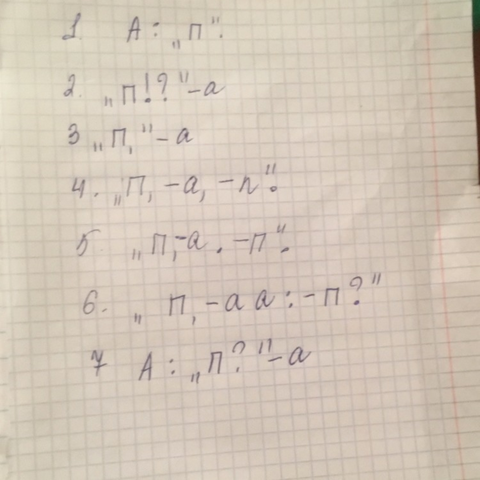 1. А: „п".
2. „п!?"-а
3 „П,"-а
4. „П, -а, -п".
5 „п,-а. -п".
6. „ п,-а а:-п?"
7 А: „П?"-а